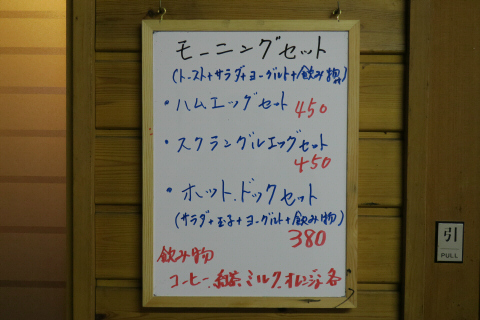 モーニングセット
(トースト+サラダ+ヨーグルト+飲み物)
・ハムエッグセット 450
・スクランブルエッグセット
450
・ホット.ドックセット
(サラダ+玉子+ヨーグルト+飲み物)
380
飲み物
コーヒー.紅茶.ミルク.オレンジ.各
引
PULL